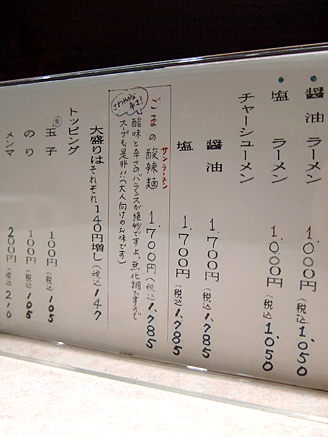 醤油ラーメン 1.000円(税込)1.050
塩 ラーメン 1.000円(税込)1.050
チャーシューメン
醤油 1.700円(税込)1.785
塩 1.700円(税込)1.785
サンラーメン
ごまの酸辣麺 1.700円(税込)1.785
酸味と辛さのバランスが絶妙ですよ。無化調ですので
スープも是非!!(大人向けのお味です)
大盛りはそれぞれ140円増し(税込)147
トッピング
玉子 100円(税込)105
のり 100円(税込)105
メンマ 200円(税込)210